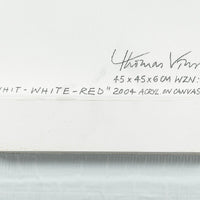 Thomas Vins
45 x 45 x 6 CM WZN:
WHIT - WHITE - RED" 2004 ACRYL ON CANVAS